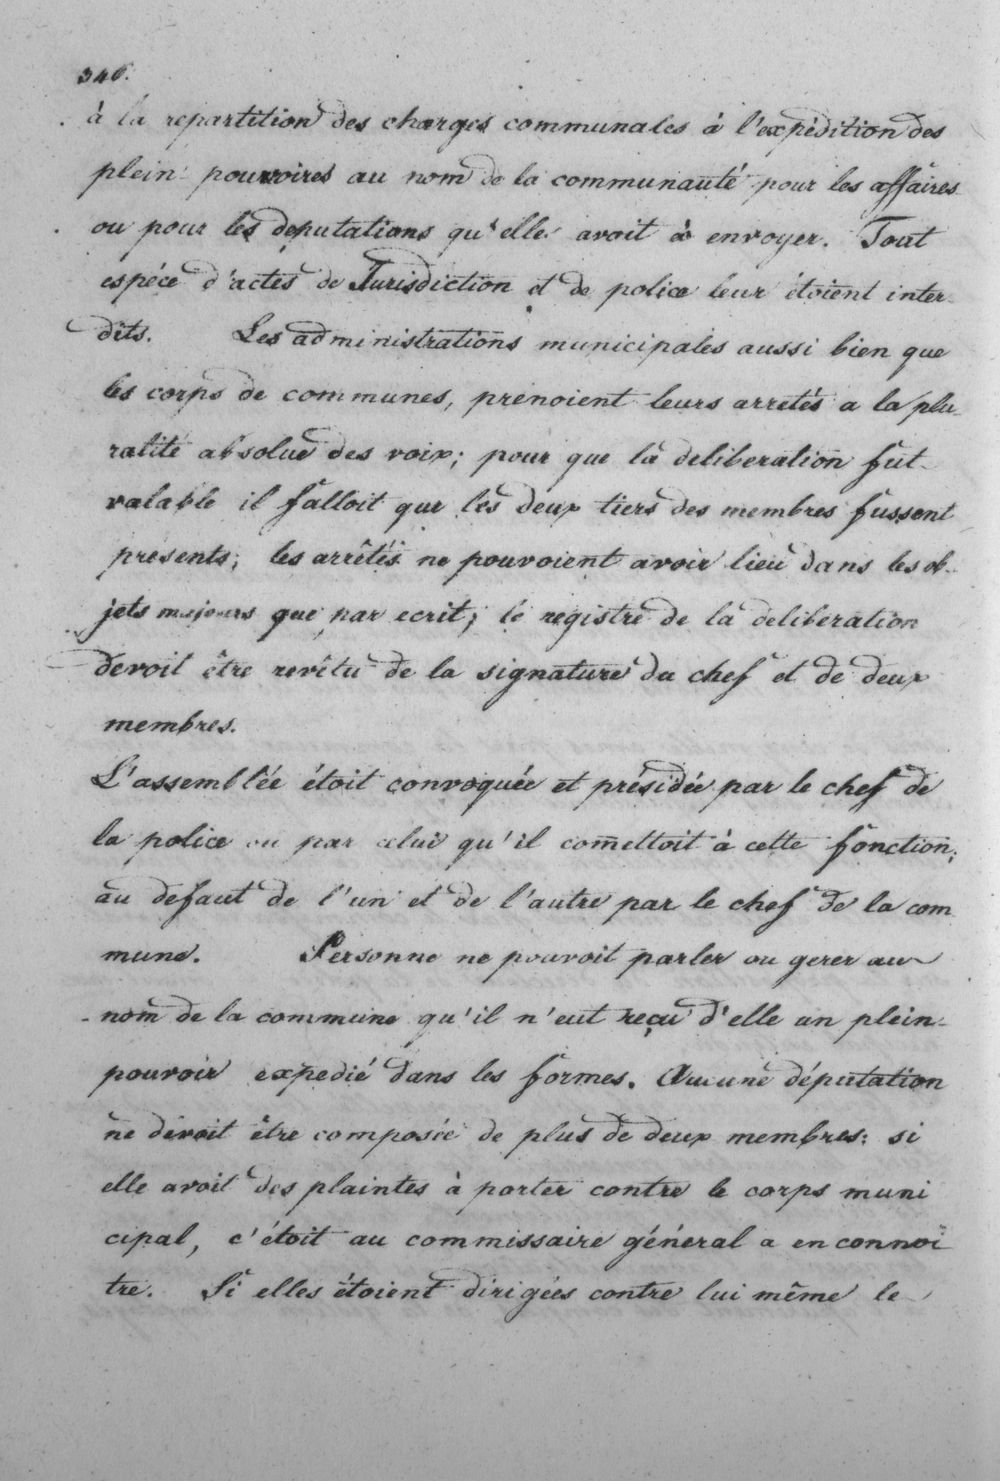 346.
à la repartition des charges communales à l'expédition des
plein pouvoires au nom de la communauté pour les affaires
ou pour les deputations qu'elle avoit à envoyer. Tout
espéce d'actes de Jurisdiction et de police leur étoient inter
dits. Les administrations municipales aussi bien que
les corps de communes, prenoient leurs arretés a la plu-
ralité absolue des voix; pour que la deliberation fut
valable il falloit que les deux tiers des membres fussent
présents; les arrêtés ne pouvoient avoir lieu dans les ob-
jets majeurs que par ecrit; le registre de la deliberation
devoit être revêtu de la signature du chef et de deux
membres.
L'assemblée étoit convoquée et présidée par le chef de
la police ou par celui qu'il comettoit à cette fonction;
au defaut de l'un et de l'autre par le chef de la com
mune. Personne ne pouvoit parler ou gerer au
nom de la commune qu'il n'eut reçu d'elle un plein-
pouvoir expedié dans les formes. Aucune députation
ne devoit être composée de plus de deux membres: si
elle avoit des plaintes à porter contre le corps muni
cipal, c'étoit au commissaire général a en connoi
tre. Si elles étoient dirigées contre lui même le